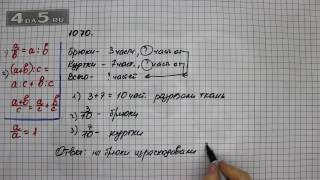 4DA5.RU
1070.
a/b = a : b
2) (a+b):c = a:c + b:c
(a+b)/c = a/c + b/c
a/a = 1
Брюки - 3 част., ? част от
Куртки - 7 част., ? част от
Всего - ? част
1) 3+7 = 10 част. разрезали ткань
2) 3/10 - брюки
3) 7/10 - куртки
Ответ: на брюки израсходовали